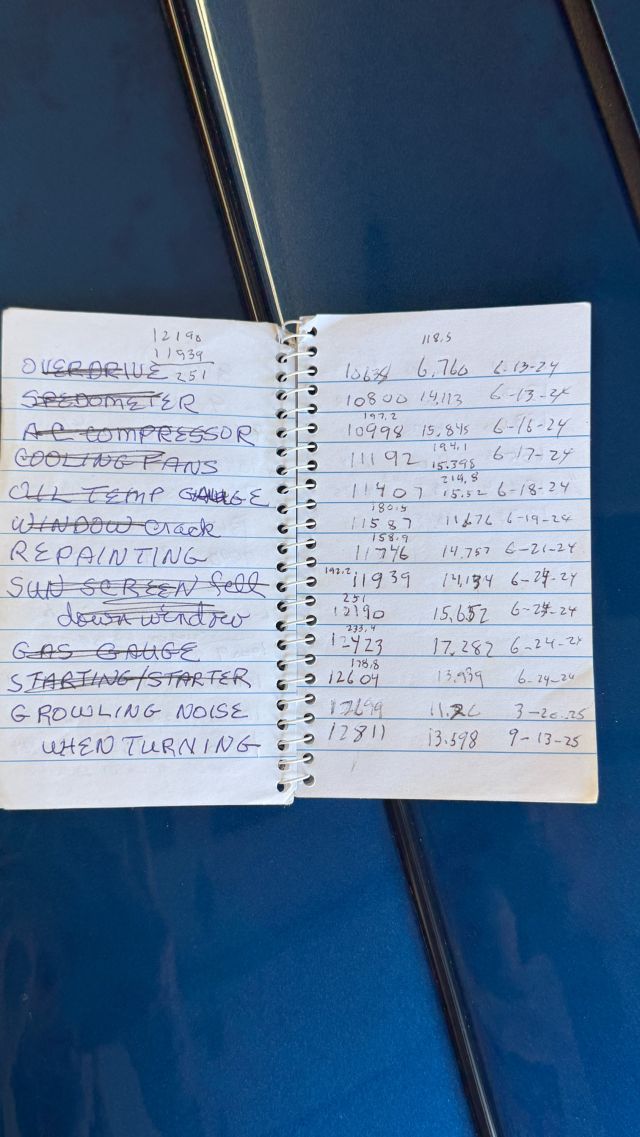 12190
11939
OVERDRIVE 251
SPEDOMETER
AC COMPRESSOR
COOLING FANS
OIL TEMP GAUGE
WINDOW Crack
REPAINTING
SUN SCREEN fell
down window
GAS GAUGE
STARTING/STARTER
GROWLING NOISE
WHEN TURNING
118.5
6,760 6-13-24
10800 14,113 6-13-24
197.2
10998 15,845 6-16-24
194.1
11192 15.398 6-17-24
214.8
11407 15.52 6-18-24
180.5
11587 11.676 6-19-24
158.9
11746 14,757 6-21-24
192.2 11939 14,134 6-24
251
12190 15,652 6-24
233.4
12423 17,282 6-24-24
178.8
12604 13,939 6-24-24
12699 3-20-25
12811 13.598 9-13-25